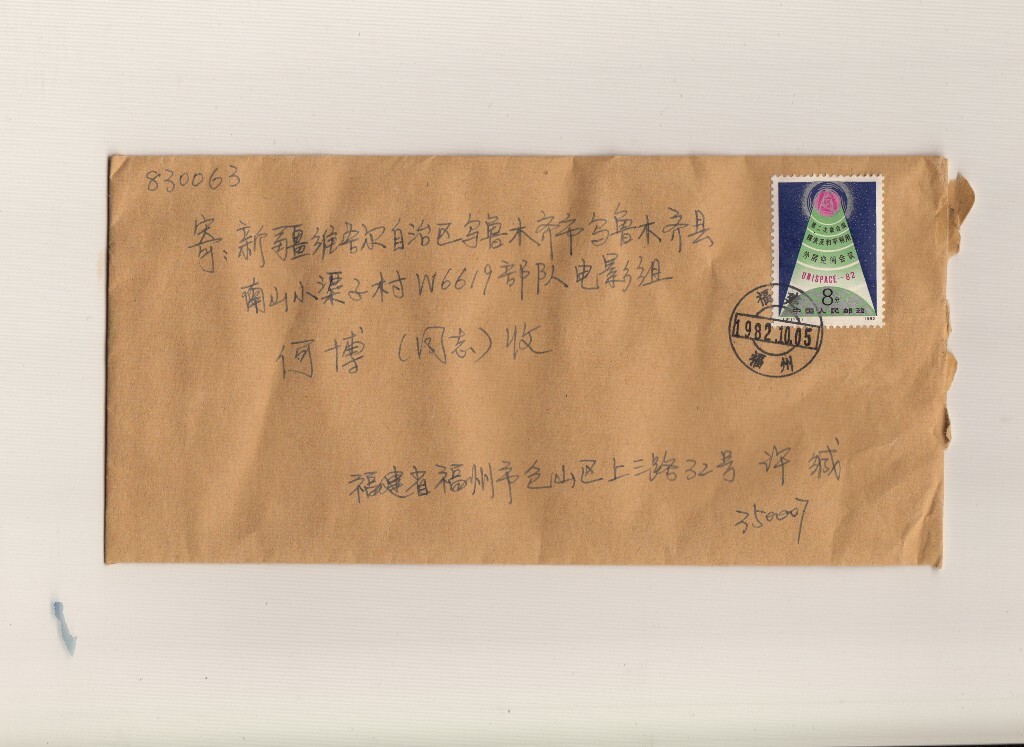 830063
寄：新疆维吾尔自治区乌鲁木齐市乌鲁木齐县
南山小渠子村W6619部队电影组
何博（同志）收
第二次联合国
探索及和平利用
外层空间会议
UNISPACE-82
8分
中国人民邮政
1982
福建
1982.10.05
福州
福建省福州市仓山区上三路32号 许
350007